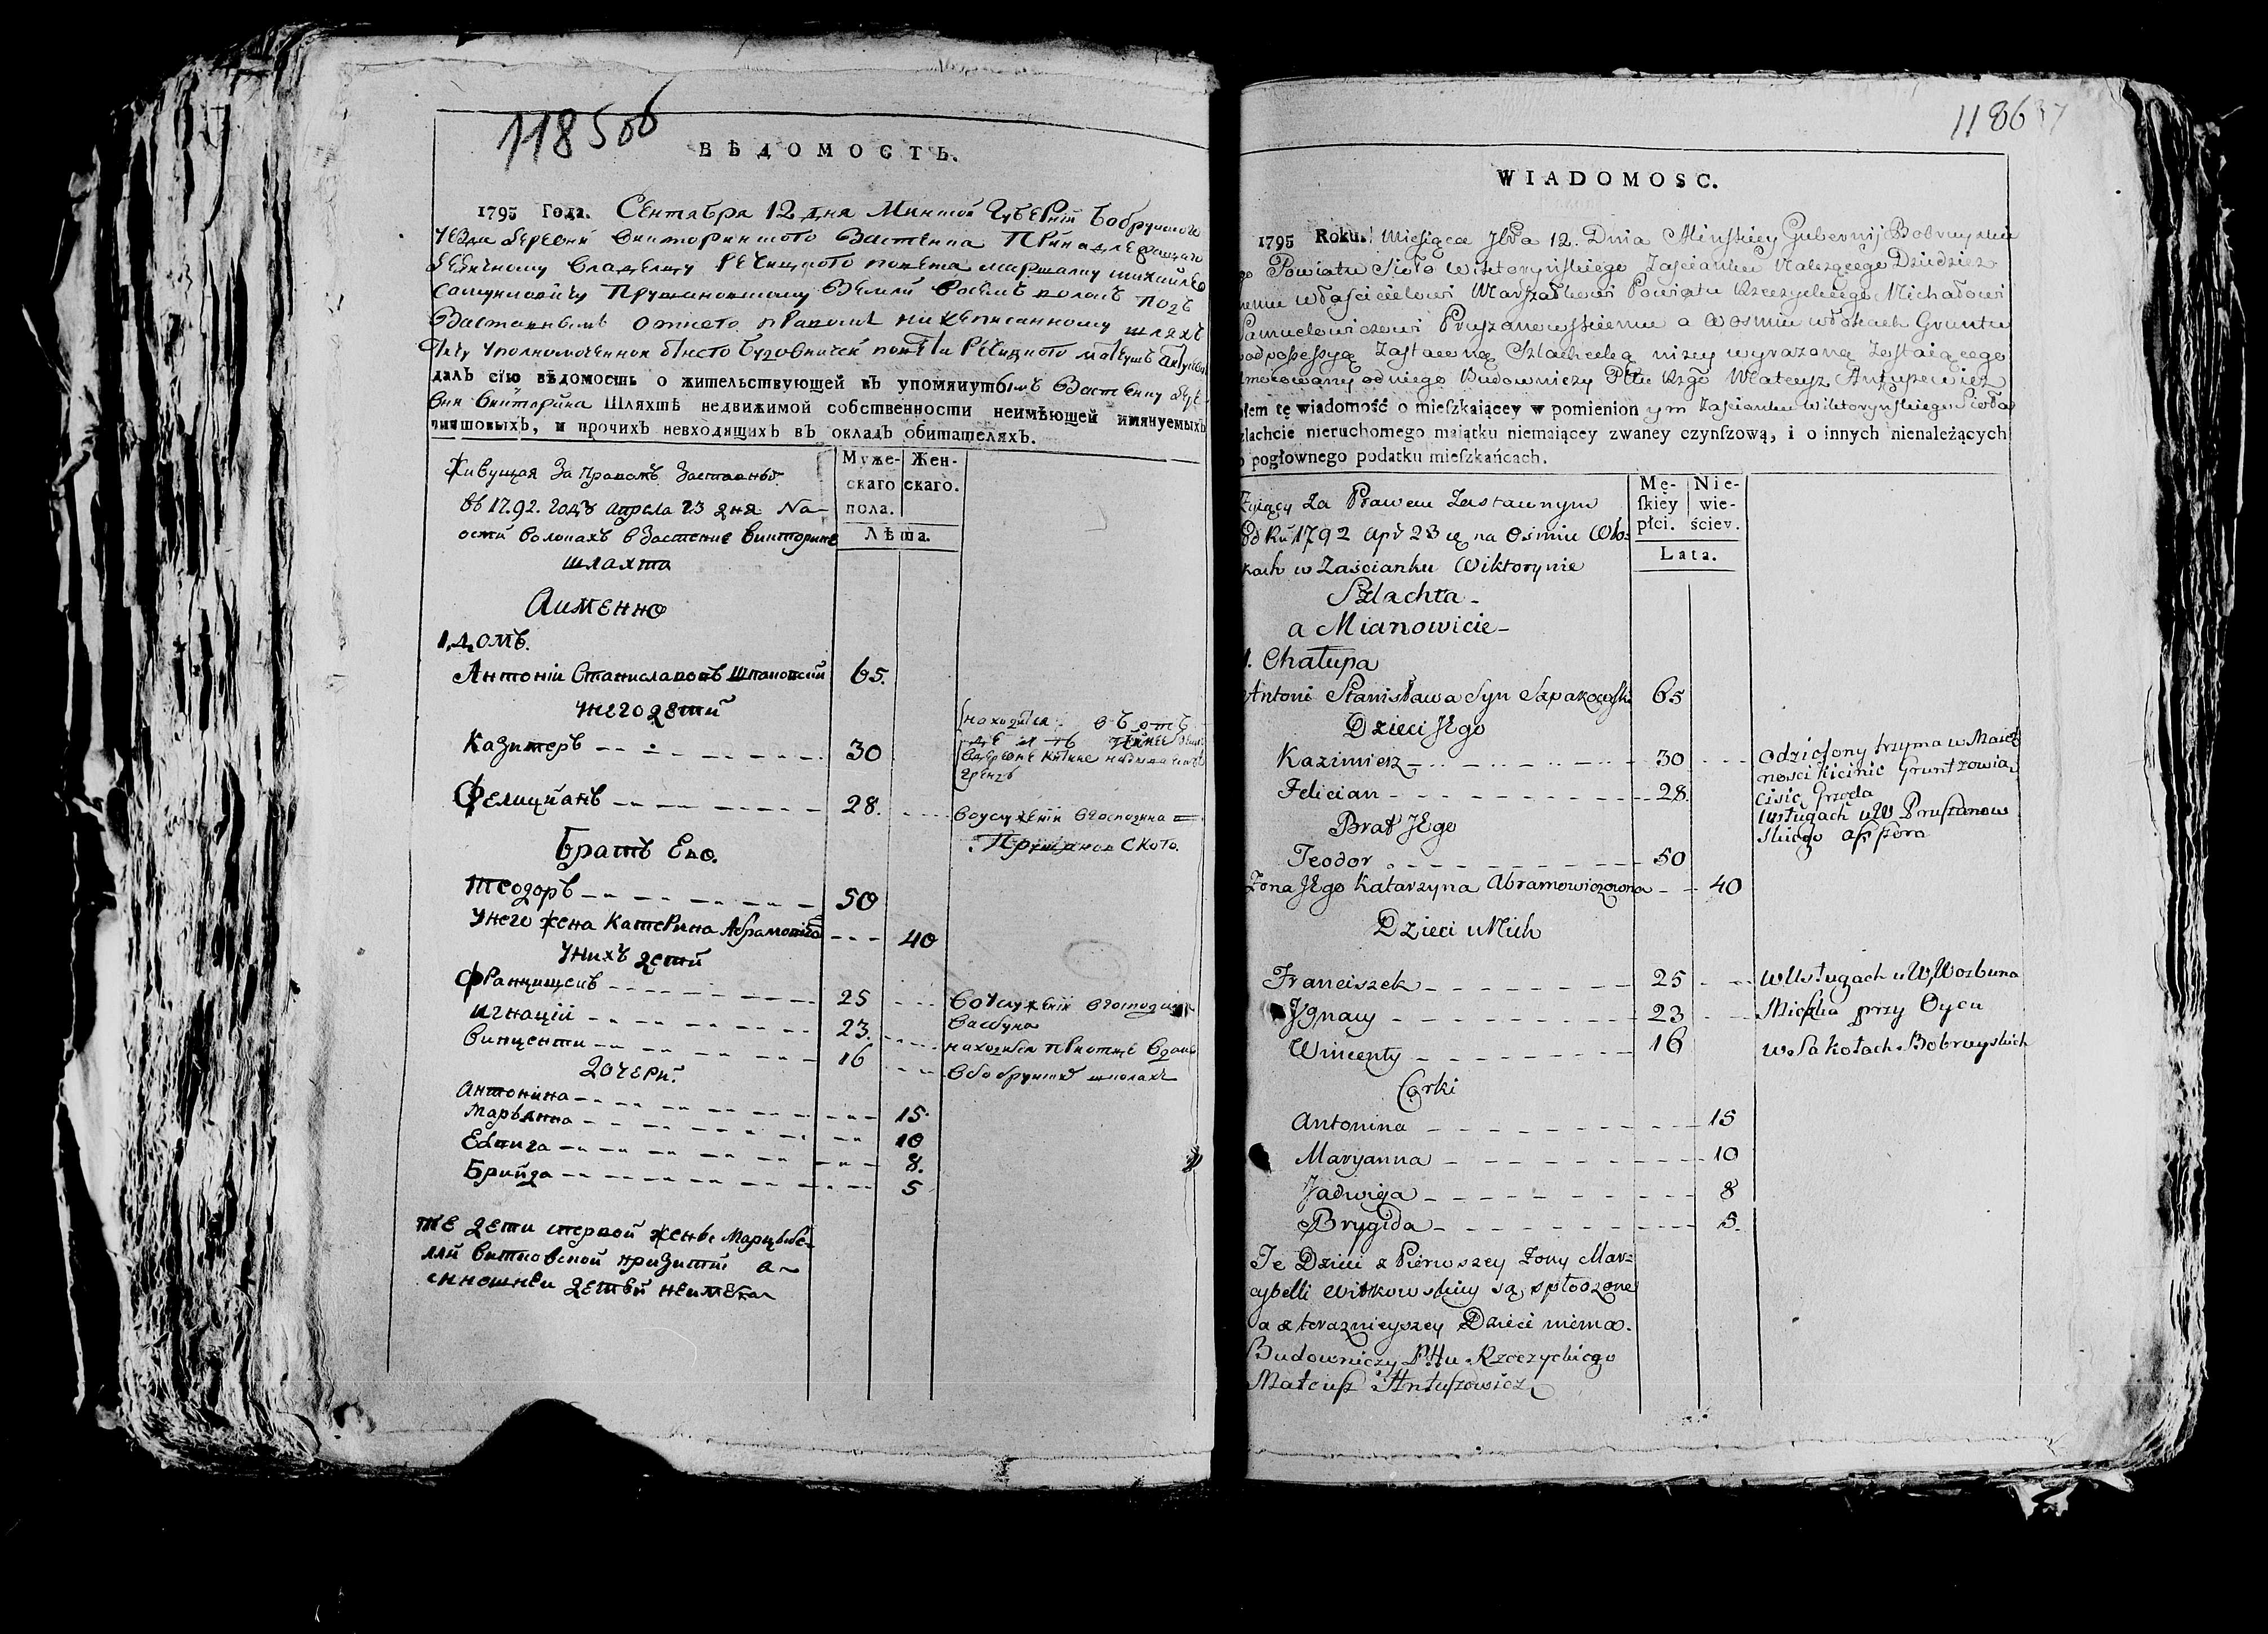 1185 об
ВѢДОМОСТЬ.
1795 Года. Сентабра 12 дня Минской Губерніи Бобруйского
уезда деревни Викторинского Застенка Принадлежащаго
Владелцу Речицкого повета маршалку михайле
Самуиловичу Прушановскому Земли восемъ волокъ подъ
Заставнымъ отнего правомъ нижеписанному
уполномоченной повета Речицкого
далъ сію вѣдомость о жительствующей въ упомянутомъ Застенку
Викторина Шляхтѣ недвижимой собственности неимѣющей имянуемыхъ
чиншовыхъ, и прочихъ невходящихъ въ окладъ обитателяхъ.
Муже-скаго пола.
Жен-скаго.
Лѣта.
Живущая За Правомъ Заставны
въ 1792. году апреля 23 дня На
осми волокахъ в Застенке Викторине
шляхта
Аименно
1. домъ.
Антоніи Станиславовъ Шпаковскій 65.
унего дети
Казимеръ 30
Фелицианъ 28. Воуслуженіи Вгосподина
Прушановского.
Братъ Его.
Теодоръ 50
Унего жена Катерина Абрамовичова 40
Унихъ дети
Францишекъ 25 Воуслуженіи Вгосподина
Васбуна
Игнацій 23. находится приотце
Винценти 16 Вбобруйскихъ школахъ
Дочери.
Антонина 15
Марьянна 10
Едвига 8.
Бригида 5
те дети спервой жены Марцыбе-
лли Витковской прижити а
снюшнеи детей неимеетъ
118637
WIADOMOSC.
1795 Roku. Miesiąca 7bra 12. Dnia Minskiey Gubernij Bobruyskie
go Powiatu Sioło Wiktoryńskiego Zascianku Należącego Dziedzicz
nemu Włascicielowi Marszałkowi Powiatu Rzeczyckiego Michałowi
Samuelewiczowi Pruszanowskiemu a Wosmiu włokach Gruntu
podpossessyą Zastawną Szlachecką niżey wyrażoną Zostaiącego
umocowany odniego Budowniczy Pttu Rzgo Mateusz Antuszewicz
ałem tę wiadomość o mieſzkaiącey w pomienion ym Zascianku Wiktoryńskiego Sioła
zlachcie nieruchomego maiątku niemaiącey zwaney czynſzową, i o innych nienależących
o pogłownego podatku mieſzkańcach.
Mę-ſkiey płci.
Nie-wie-ściey.
Lata.
Zyiący Za Prawem Zastawnym
Od Ru 1792 Apr 23 na Osmiu Wło-
kach w Zascianku Wiktorynie
Szlachta
a Mianowicie
1. Chałupa
Antoni Stanisława Syn Szpakowski 65
Dzieci Jego
Kazimierz 30 Odzielony trzyma w Maięt
nosci Kicinie Grunt
Felician 28. Wsługach u W Pruszanow
skiego assessora
Brat Jego
Teodor 50
Zona Jego Katarzyna Abramowiczowna 40
Dzieci u Nich
Franciszek 25 w Usługach u W. Wozbuna
Jgnacy 23 Mieszka przy Oycu
Wincenty 16 w Szkołach Bobruyskich
Corki
Antonina 15
Maryanna 10
Jadwiga 8
Brygida 5.
Te Dzieci z Pierwszey Zony Mar-
cybelli Witkowskiey są spłodzone
a z terazneyszey Dzieci niema.
Budowniczy Pttu Rzeczyckiego
Mateusz Antuszewicz